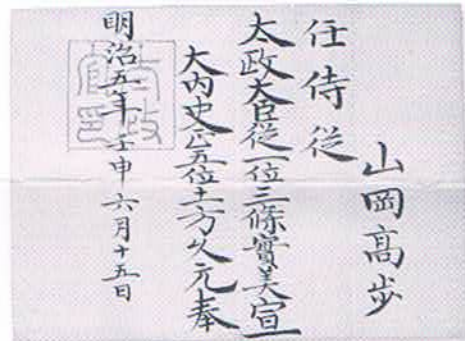 山岡高歩
任侍従
太政大臣従一位三條實美宣
大内史正五位土方久元奉
明治五年壬申六月十五日
太政官印